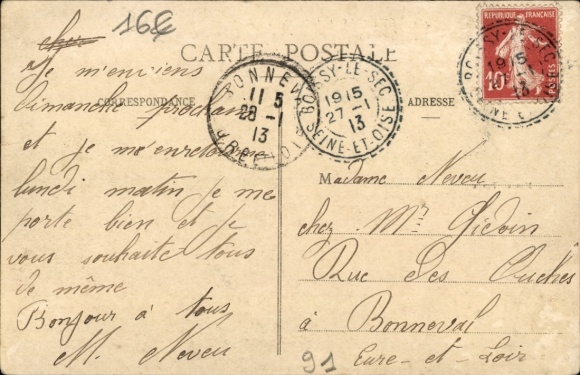 16€
CARTE POSTALE
CORRESPONDANCE
ADRESSE
Je m'en viens
Dimanche prochain
et je m'en retourne
lundi matin je me
porte bien et je
vous souhaite tous
de même
Bonjour à tous
M. Neveu
BONNEVAL
11 5
28 -1
13
BOISSY-LE-SEC
19 15
27 -1
13
SEINE-ET-OISE
REPUBLIQUE FRANÇAISE
10
BOISSY-LE-SEC
19 15
13
SEINE-ET-OISE
Madame Neveu
chez Mr Gidoin
Rue des Ouches
à Bonneval
Eure-et-Loir
91